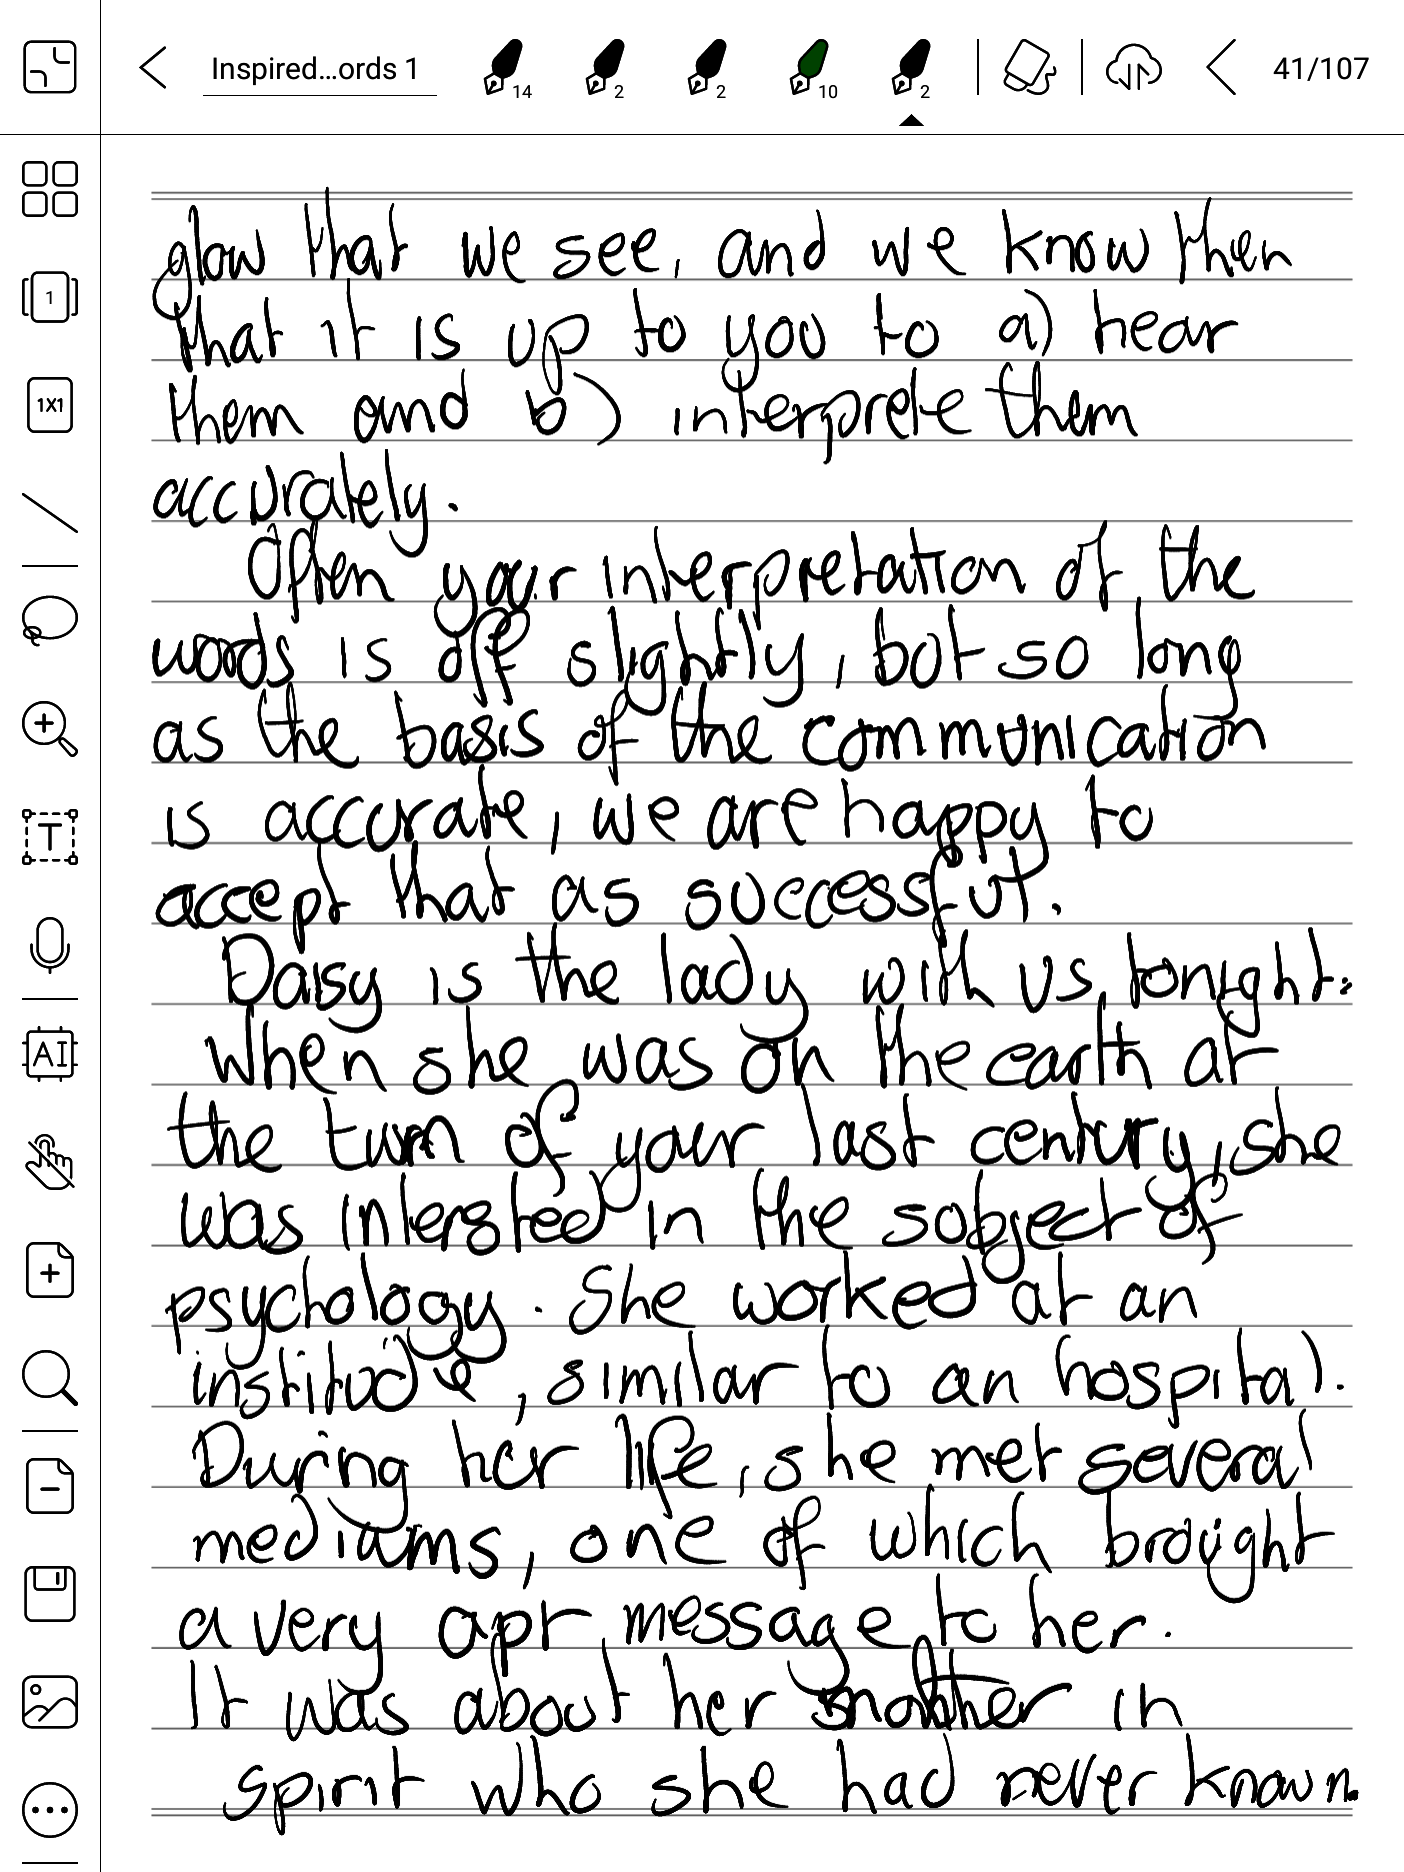 Inspired...ords 1
14
2
2
10
2
41/107
1
1X1
T
AI
glow that we see, and we know then
that it is up to you to a) hear
them and b) interprete them
accurately.
Often your interpretation of the
words is off slightly, but so long
as the basis of the communication
is accurate, we are happy to
accept that as successful.
Daisy is the lady with us tonight.
When she was on the earth at
the turn of your last century, she
was interested in the subject of
psychology. She worked at an
institude, similar to an hospital.
During her life, she met several
mediums, one of which brought
a very apt message to her.
It was about her mother in
spirit who she had never known.